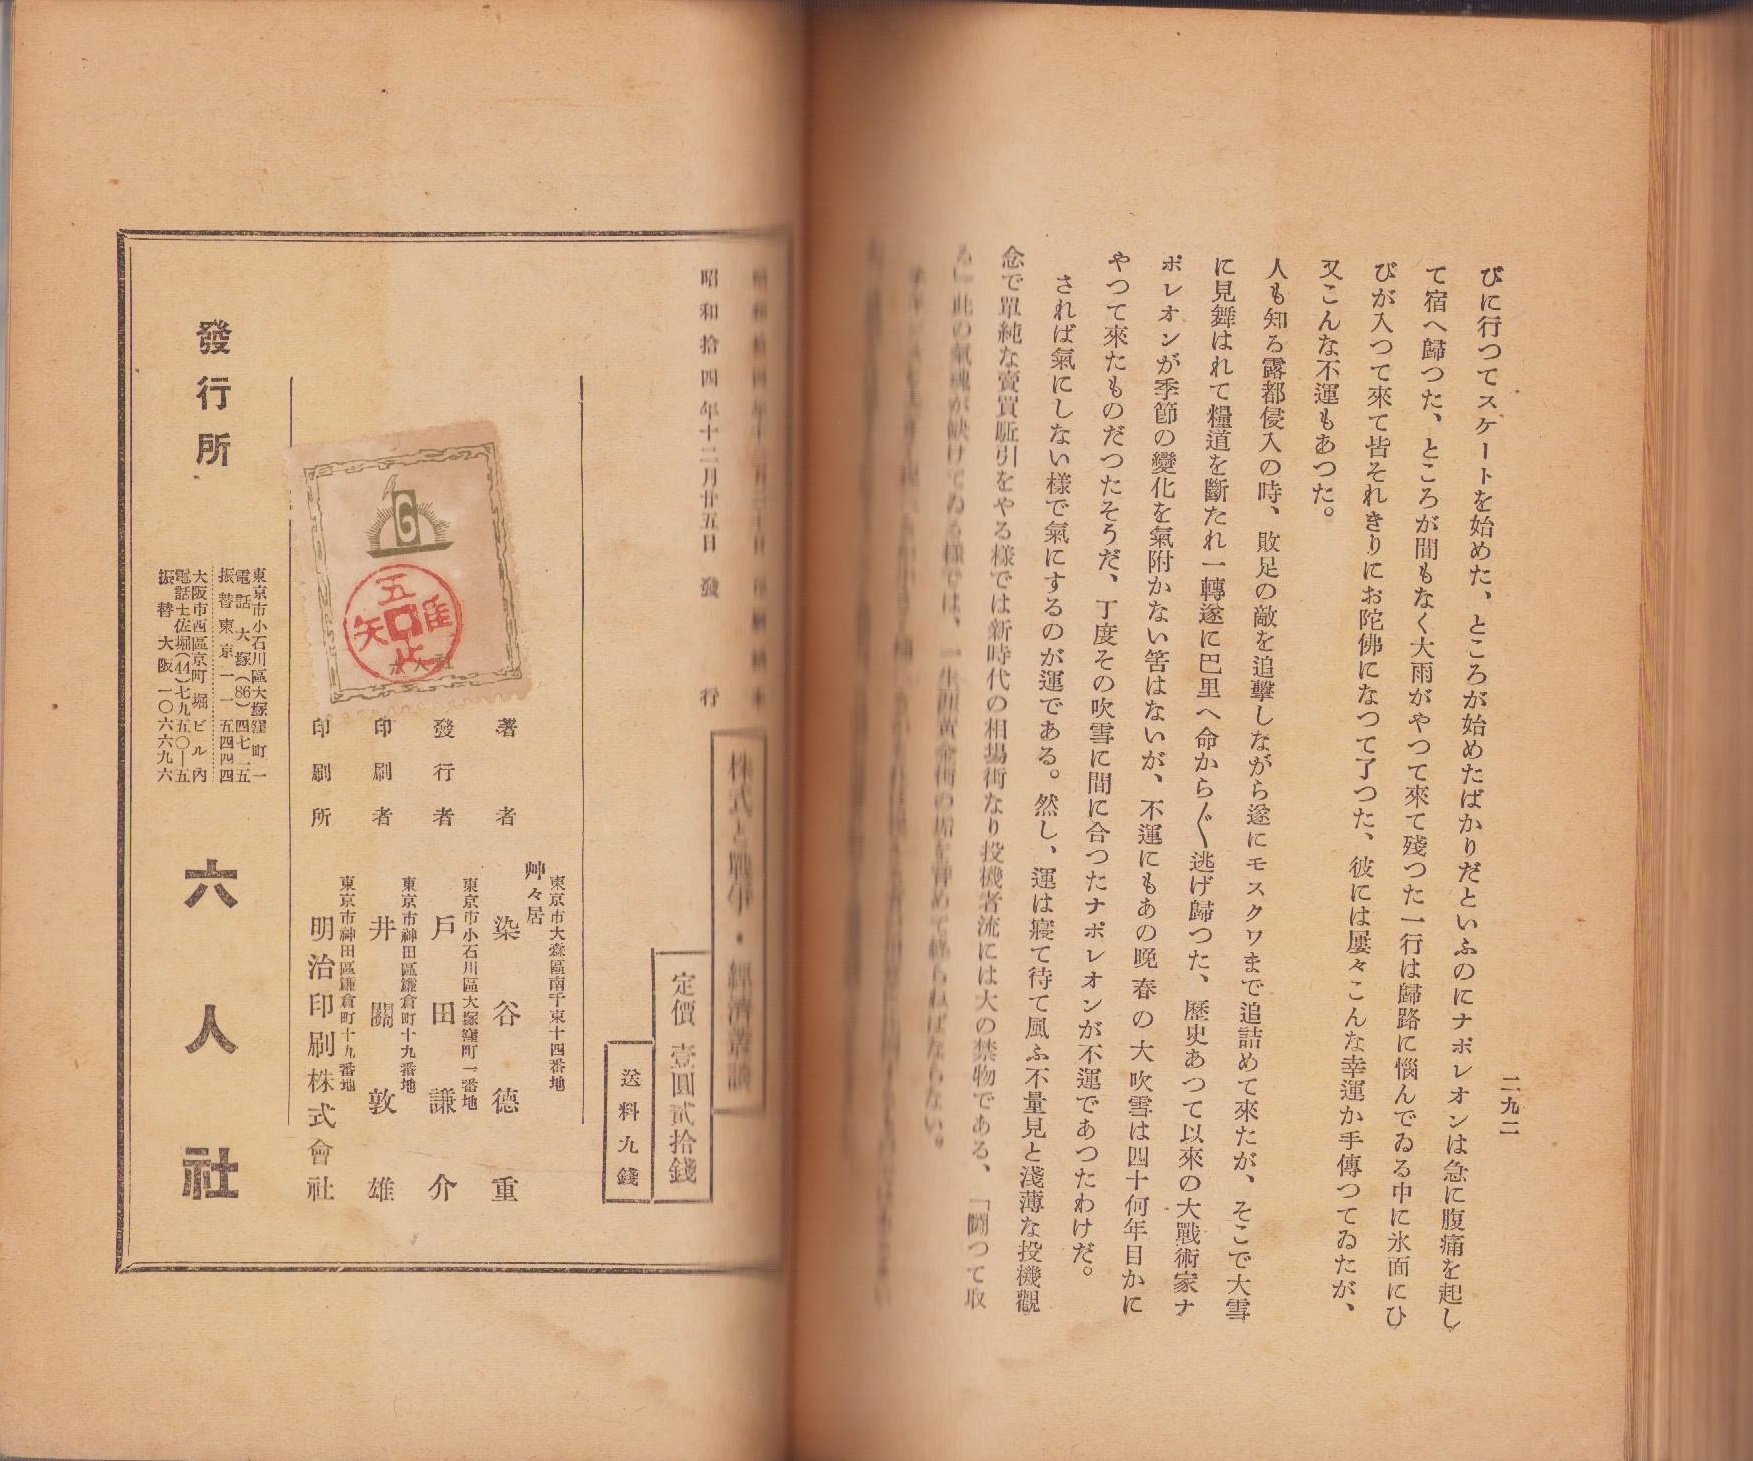 二九二
びに行つてスケートを始めた、ところが始めたばかりだといふのにナポレオンは急に腹痛を起し
て宿へ歸つた、ところが間もなく大雨がやつて來て殘つた一行は歸路に惱んでゐる中に氷面にひ
びが入つて來て皆それきりにお陀佛になつて了つた、彼には屢々こんな幸運か手傳つてゐたが、
又こんな不運もあつた。
人も知る露都侵入の時、敗足の敵を追擊しながら遂にモスクワまで追詰めて來たが、そこで大雪
に見舞はれて糧道を斷たれ一轉遂に巴里へ命から〴〵逃げ歸つた、歷史あつて以來の大戰術家ナ
ポレオンが季節の變化を氣附かない筈はないが、不運にもあの晚春の大吹雪は四十何年目かに
やつて來たものだつたそうだ、丁度その吹雪に間に合つたナポレオンが不運であつたわけだ。
されば氣にしない樣で氣にするのが運である。然し、運は寢て待て風ふ不量見と淺薄な投機觀
念で單純な賣買駈引をやる樣では新時代の相場街なり投機者流には大の禁物である、「鬪つて取
る」此の氣魂が缺けてゐる樣では、一生涯黃金街の垢を嘗めて終らねばならない。
昭和拾四年十二月廿五日發行
株式と戰爭・經濟叢談
定價 壹圓貳拾錢
送料九錢
東京市大森區南千束十四番地
艸々居
著者 染谷德重
東京市小石川區大塚窪町一番地
發行者 戶田謙介
東京市神田區鎌倉町十九番地
印刷者 井關敦雄
東京市神田區鎌倉町十九番地
印刷所 明治印刷株式會社
6
五唯止矢
六人社
發行所
東京市小石川區大塚窪町一
電話 大塚(86)四七一五
振替東京一一五四四四
大阪市西區京町堀ビル內
電話土佐堀(44)七九五〇—五
振替大阪一〇六六九六
六人社